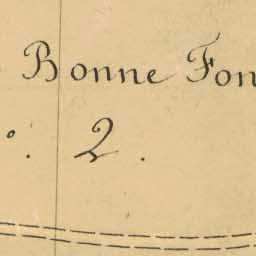 Bonne Fon
o. 2.